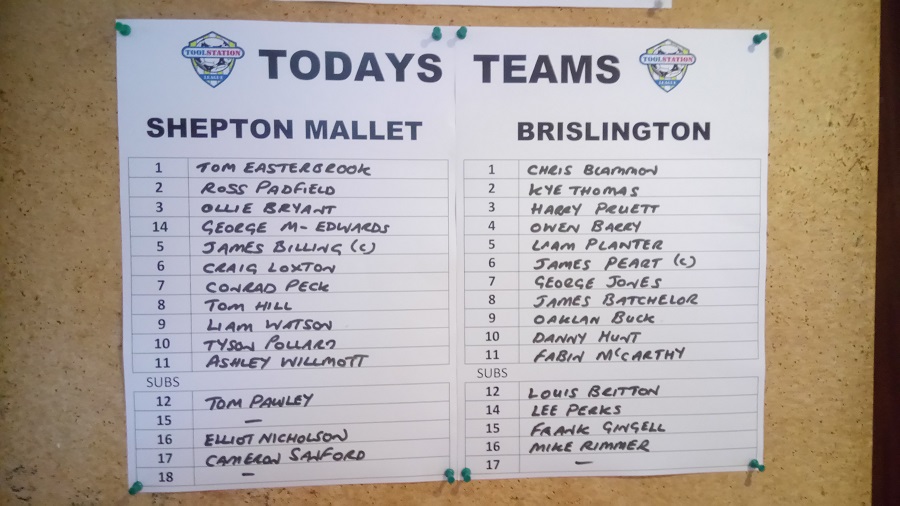 TOOLSTATION LEAGUE TODAYS
SHEPTON MALLET
1 TOM EASTERBROOK
2 ROSS PADFIELD
3 OLLIE BRYANT
14 GEORGE M-EDWARDS
5 JAMES BILLING (C)
6 CRAIG LOXTON
7 CONRAD PECK
8 TOM HILL
9 LIAM WATSON
10 TYSON POLLARD
11 ASHLEY WILLMOTT
SUBS
12 TOM PAWLEY
15 —
16 ELLIOT NICHOLSON
17 CAMERON SANFORD
18 —
TEAMS TOOLSTATION LEAGUE
BRISLINGTON
1 CHRIS
2 KYE THOMAS
3 HARRY PRUETT
4 OWEN BARRY
5 LIAM PLANTER
6 JAMES PEART (C)
7 GEORGE JONES
8 JAMES BATCHELOR
9 OAKLAN BUCK
10 DANNY HUNT
11 FABIN McCARTHY
SUBS
12 LOUIS BRITTON
14 LEE PERKS
15 FRANK GINGELL
16 MIKE RIMMER
17 —